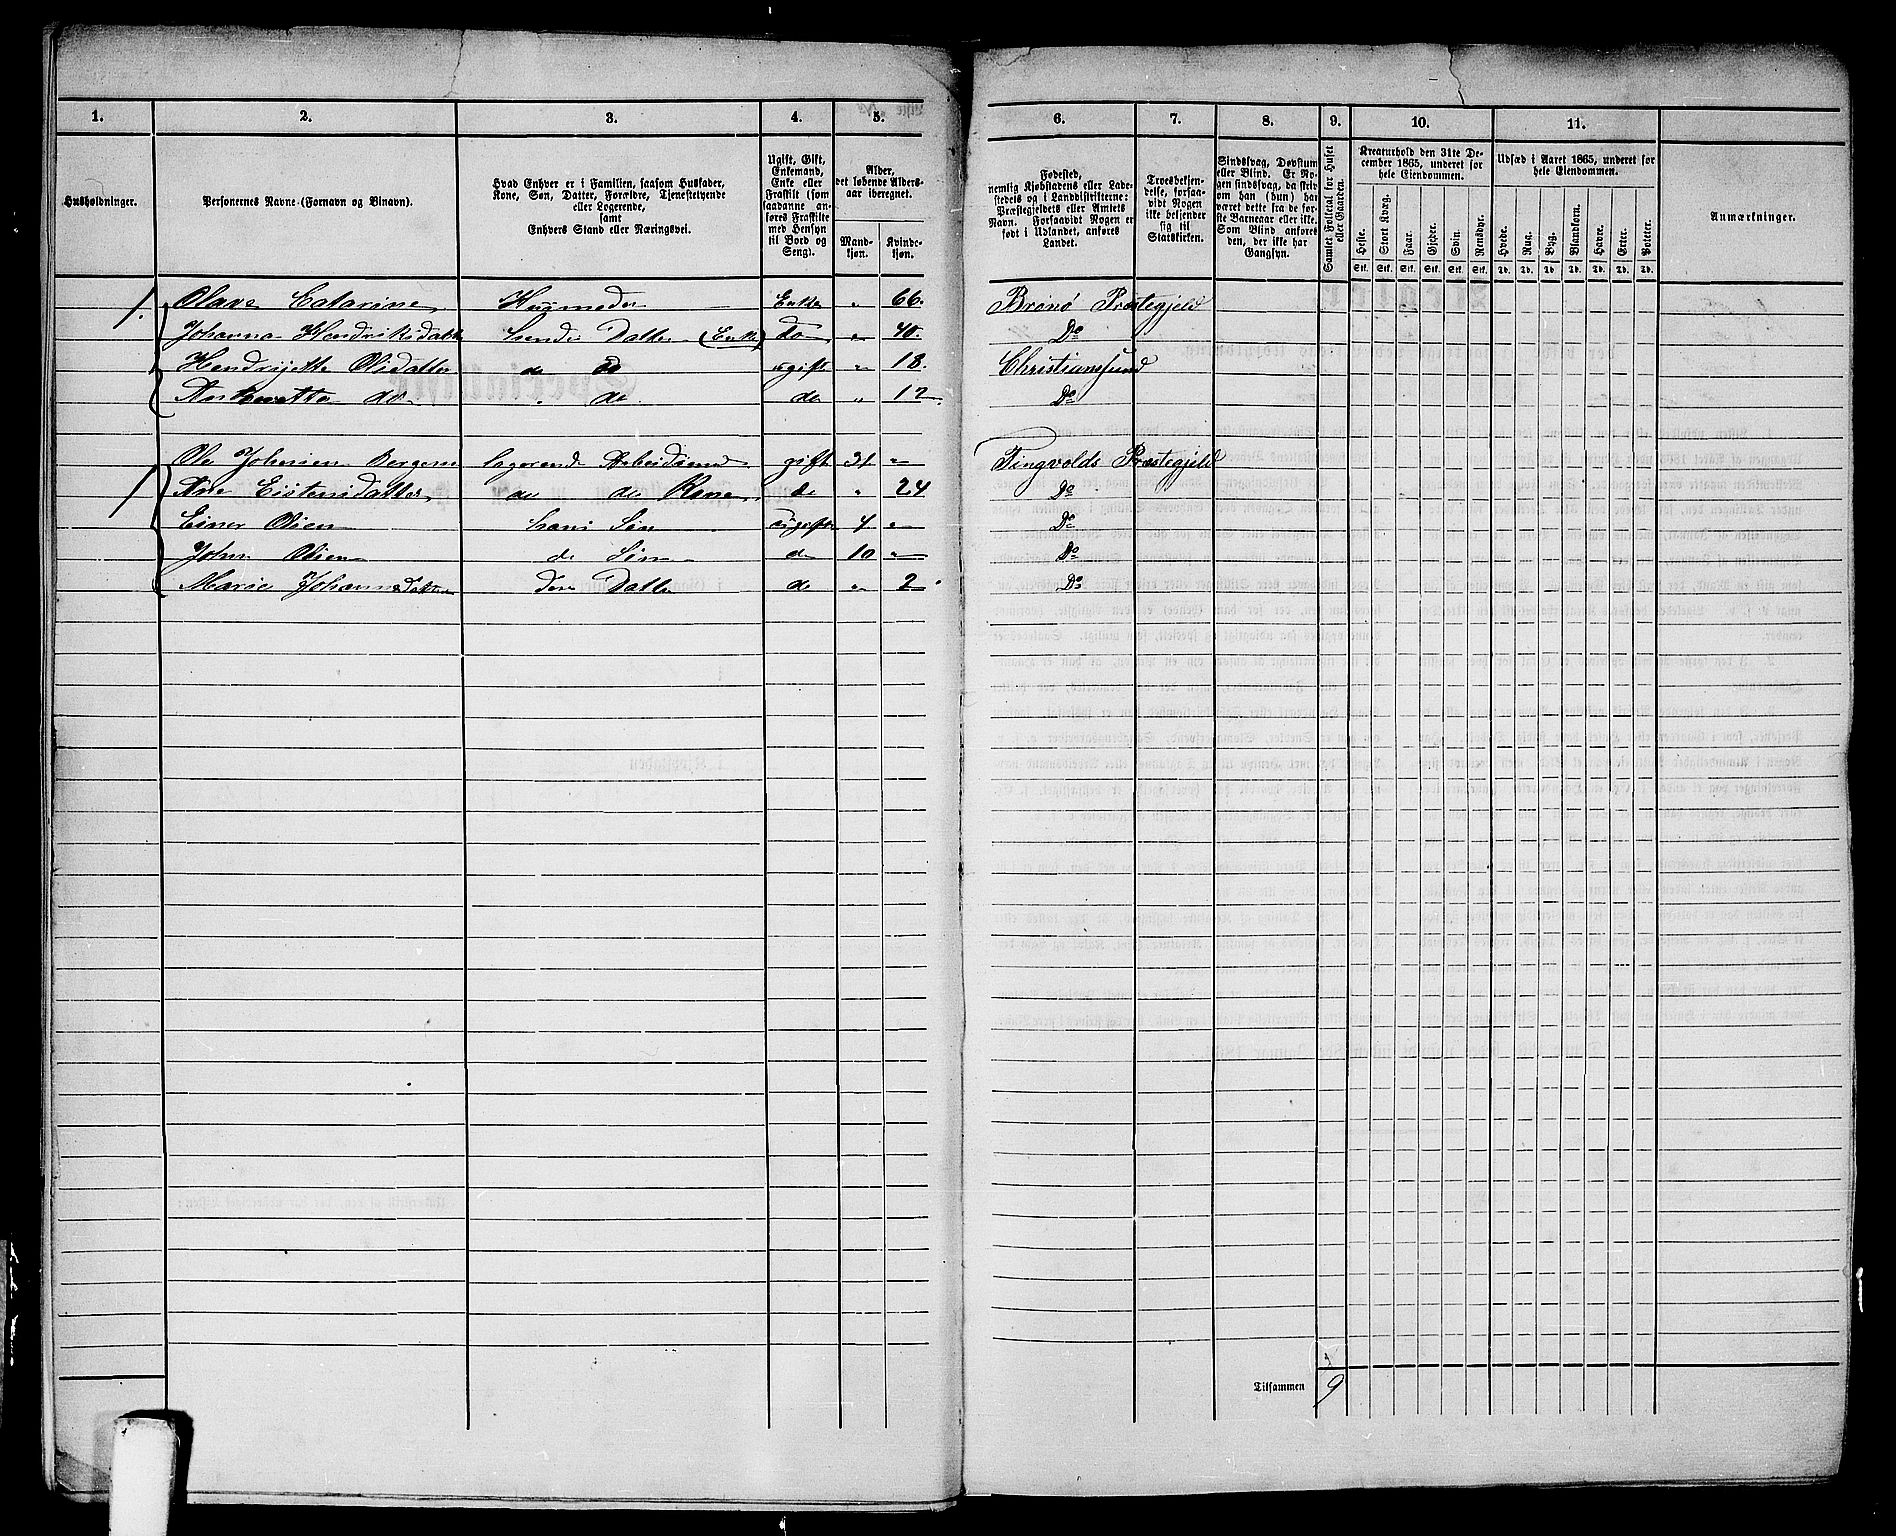 1. 2. 3. 4. 5. 6. 7. 8. 9. 10. 11.
Husholdninger.
Personernes Navne (Fornavn og Binavn).
Hvad Enhver er i Familien, saasom Husfader,
Kone, Søn, Datter, Forældre, Tjenestetyende
eller Logerende,
samt
Enhvers Stand eller Næringsvei.
Ugift, Gift,
Enkemand,
Enke eller
Fraskilt (som
saadanne an-
føres Fraskilte
med Hensyn
til Bord og
Seng).
Alder,
det løbende Alders-
aar iberegnet.
Mand-
kjøn.
Kvinde-
kjøn.
Fødested,
nemlig Kjøbstadens eller Lade-
stedets og i Landdistrikterne:
Præstegjeldets eller Amtets
Navn. Forsaavidt Nogen er
født i Udlandet, anføres
Landet.
Troesbekjen-
delse, forsaa-
vidt Nogen
ikke bekjender
sig til
Statskirken.
Sindssvag, Døvstum
eller Blind. Er No-
gen sindssvag, da skriv
om han (hun) har
været dette fra de før-
ste Barneaar eller ikke.
Som Blind anføres
den, der ikke har
Gangsyn.
Samlet Folketal for Huset eller Gaarden.
Kreaturhold den 31te De-
cember 1865, underet for
hele Eiendommen.
Heste. Stort Kvæg. Faar. Gjeder. Svin. Rensdyr.
Stk. Stk. Stk. Stk. Stk. Stk.
Udsæd i Aaret 1865, underet for
hele Eiendommen.
Hvede. Rug. Byg. Blandkorn. Havre. Erter. Poteter.
Td. Td. Td. Td. Td. Td. Td.
Anmærkninger.
1. Olave Catarine Husmoder Enke " 66. Brønø Præstegjeld
Johanna Hendriksdatter hendes Datter (Enke) do " 40. Do
Hendrijette Olsdatter do do ugift " 18. Christianssund
Antonette do " do do " 12. Do
1 Ole Johnsen Bergem logerende Arbeidsmd gift 31 " Tingvolds Præstegjeld
Ane Eistensdatter do do Kone do " 24 Do
Einer Olsen hans Søn ugift 4 " Do
John Olsen do Søn do 10 " Do
Marie Johannsdatter deres Datter do " 2 Do
Tilsammen 9